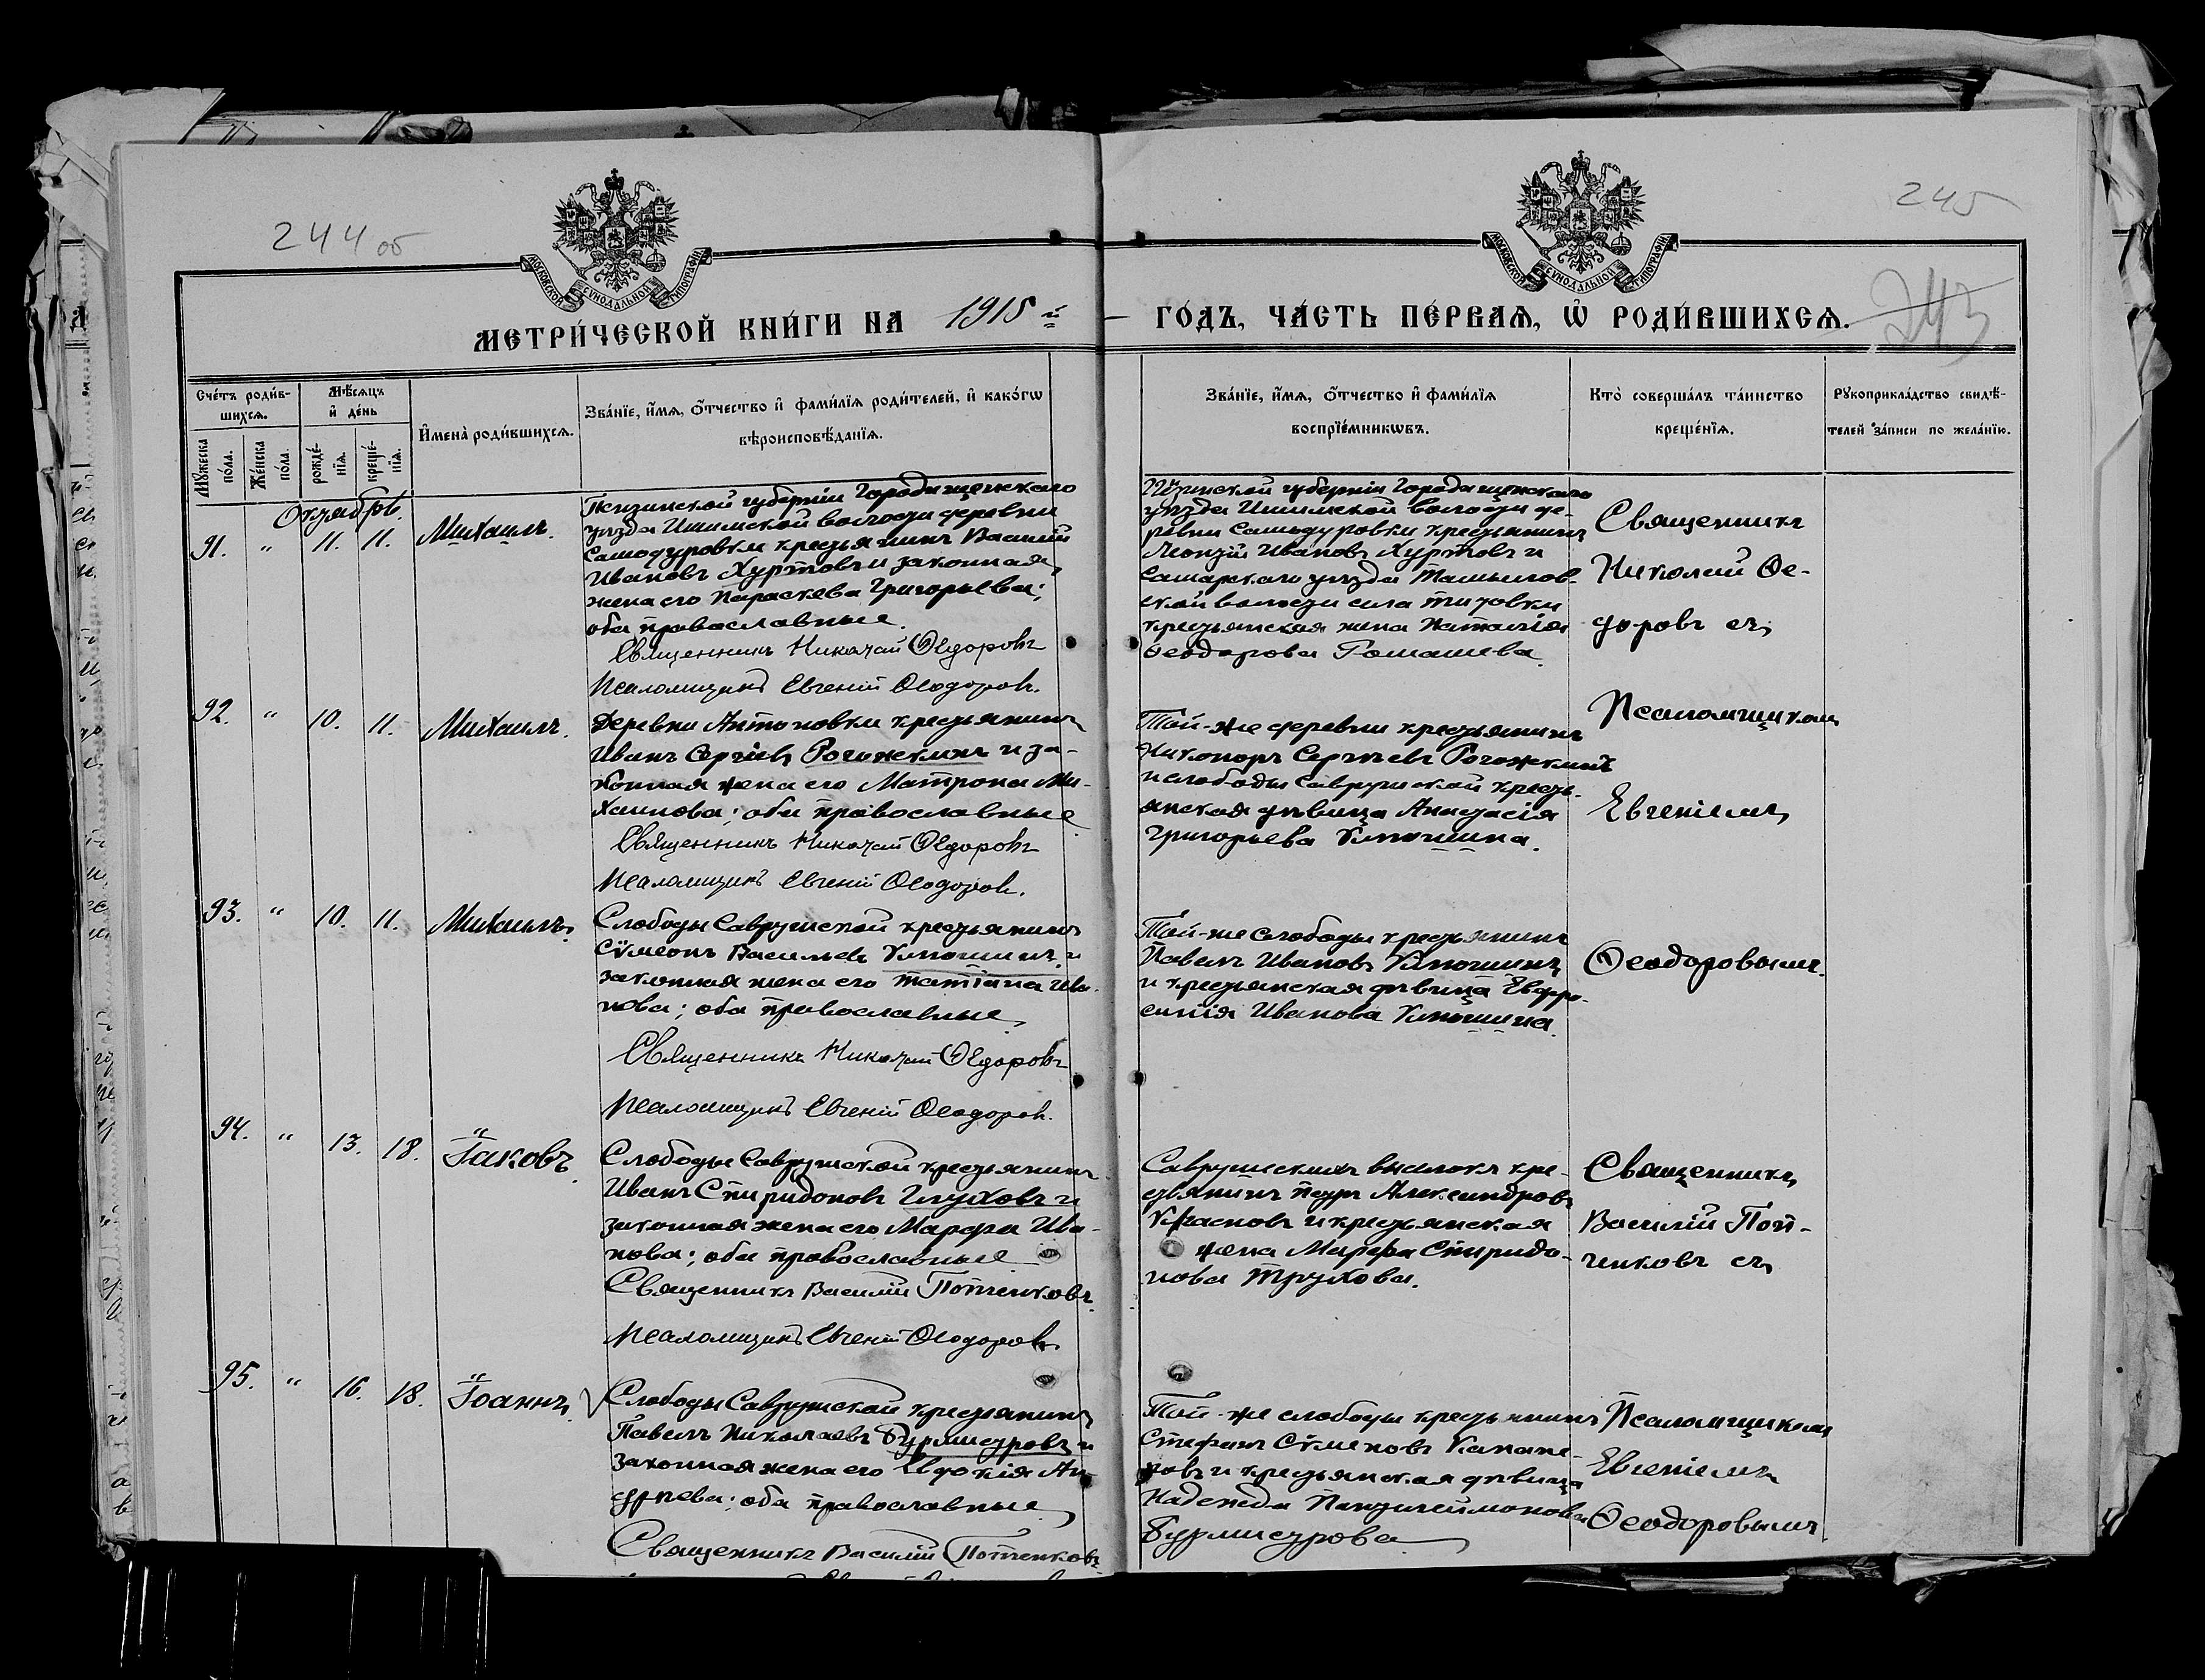 244 об
245
243
МОСКОВСКОЙ СѴНОДАЛЬНОЙ ТИПОГРАФІИ
МОСКОВСКОЙ СѴНОДАЛЬНОЙ ТИПОГРАФІИ
МЕТРИ́ЧЕСКОЙ КНИ́ГИ НА 1915 й ГО́ДЪ, ЧА́СТЬ ПЕ́РВАѦ, Ѡ҆ РОДИ́ВШИХСѦ.
Сче́тъ роди́в-
шихсѧ.
Мѣ́сѧцъ
и҆ де́нь
Мꙋ́жеска
по́ла.
Же́нска
по́ла.
рожде́-
нїѧ.
креще́-
нїѧ.
И҆мена̀ роди́вшихсѧ.
Зва́нїе, и҆́мѧ, ѻ҆́тчество и҆ фами́лїѧ роди́телей, и҆ како́гѡ
вѣроисповѣ́данїѧ.
Зва́нїе, и҆́мѧ, ѻ҆́тчество и҆ фами́лїѧ
воспрїе́мникѡвъ.
Кто̀ соверша́лъ та́инство
креще́нїѧ.
Рꙋкоприкла́дство свидѣ́-
телей за́писи по жела́нїю.
Октябрь.
91. " 11. 11. Михаилъ.
Пензинской губерніи Городищенскаго
уѣзда Ишимской волости деревни
Самодуровки крестьянинъ Василій
Ивановъ Хуртовъ и законная
жена его Параскева Григорьева;
оба православные.
Священникъ Николай Ѳедоровъ
Псаломщикъ Евгеній Ѳеодоровъ.
Пензинской губерніи Городищенскаго
уѣзда Ишимской волости де-
ревни Самодуровки крестьянинъ
Леонтій Ивановъ Хуртовъ и
Самарскаго уѣзда
ской волости села Титовки
крестьянская жена Наталія
Ѳеодорова Ромашева.
Священникъ
Николай Ѳе-
доровъ съ
Псаломщикомъ
Евгеніемъ
Ѳеодоровымъ.
92. " 10. 11. Михаилъ.
Деревни Антоновки крестьянинъ
Иванъ Сергіевъ Рогожкинъ и за-
конная жена его Матрона Ми-
хаилова; оба православные
Священникъ Николай Ѳедоровъ
Псаломщикъ Евгеній Ѳеодоровъ.
Той-же деревни крестьянинъ
Никоноръ Сергѣевъ Рогожкинъ
и слободы Саврушской кресть-
янская дѣвица Анастасія
Григорьева Клюшина.
93. " 10. 11. Михаилъ.
Слободы Саврушской крестьянинъ
Сѵмеонъ Васильевъ Клюшинъ и
законная жена его Татіана Ива-
нова; оба православные
Священникъ Николай Ѳедоровъ
Псаломщикъ Евгеній Ѳеодоровъ.
Той-же слободы крестьянинъ
Павелъ Ивановъ Клюшинъ
и крестьянская дѣвица Евфро-
синія Иванова Клюшина.
94. " 13. 18. Іаковъ.
Слободы Саврушской крестьянинъ
Иванъ Спиридоновъ Глуховъ и
законная жена его Марфа Ива-
нова; оба православные
Священникъ Василій Потченковъ.
Псаломщикъ Евгеній Ѳеодоровъ.
Саврушскихъ выселокъ кре-
стьянинъ Петръ Александровъ
Красновъ и крестьянская
жена Марфа Спиридо-
нова Трухова.
Священникъ
Василій Пот-
ченковъ съ
Псаломщикомъ
Евгеніемъ
Ѳеодоровымъ
95. " 16. 18. Іоаннъ.
Слободы Саврушской крестьянинъ
Павелъ Николаевъ Бурмистровъ и
законная жена его Евдокія Ан-
дреева; оба православные
Священникъ Василій Потченковъ.
Той-же слободы крестьянинъ
Стефанъ Сѵменовъ
и крестьянская дѣвица
Надежда Пантелеймонова
Бурмистрова